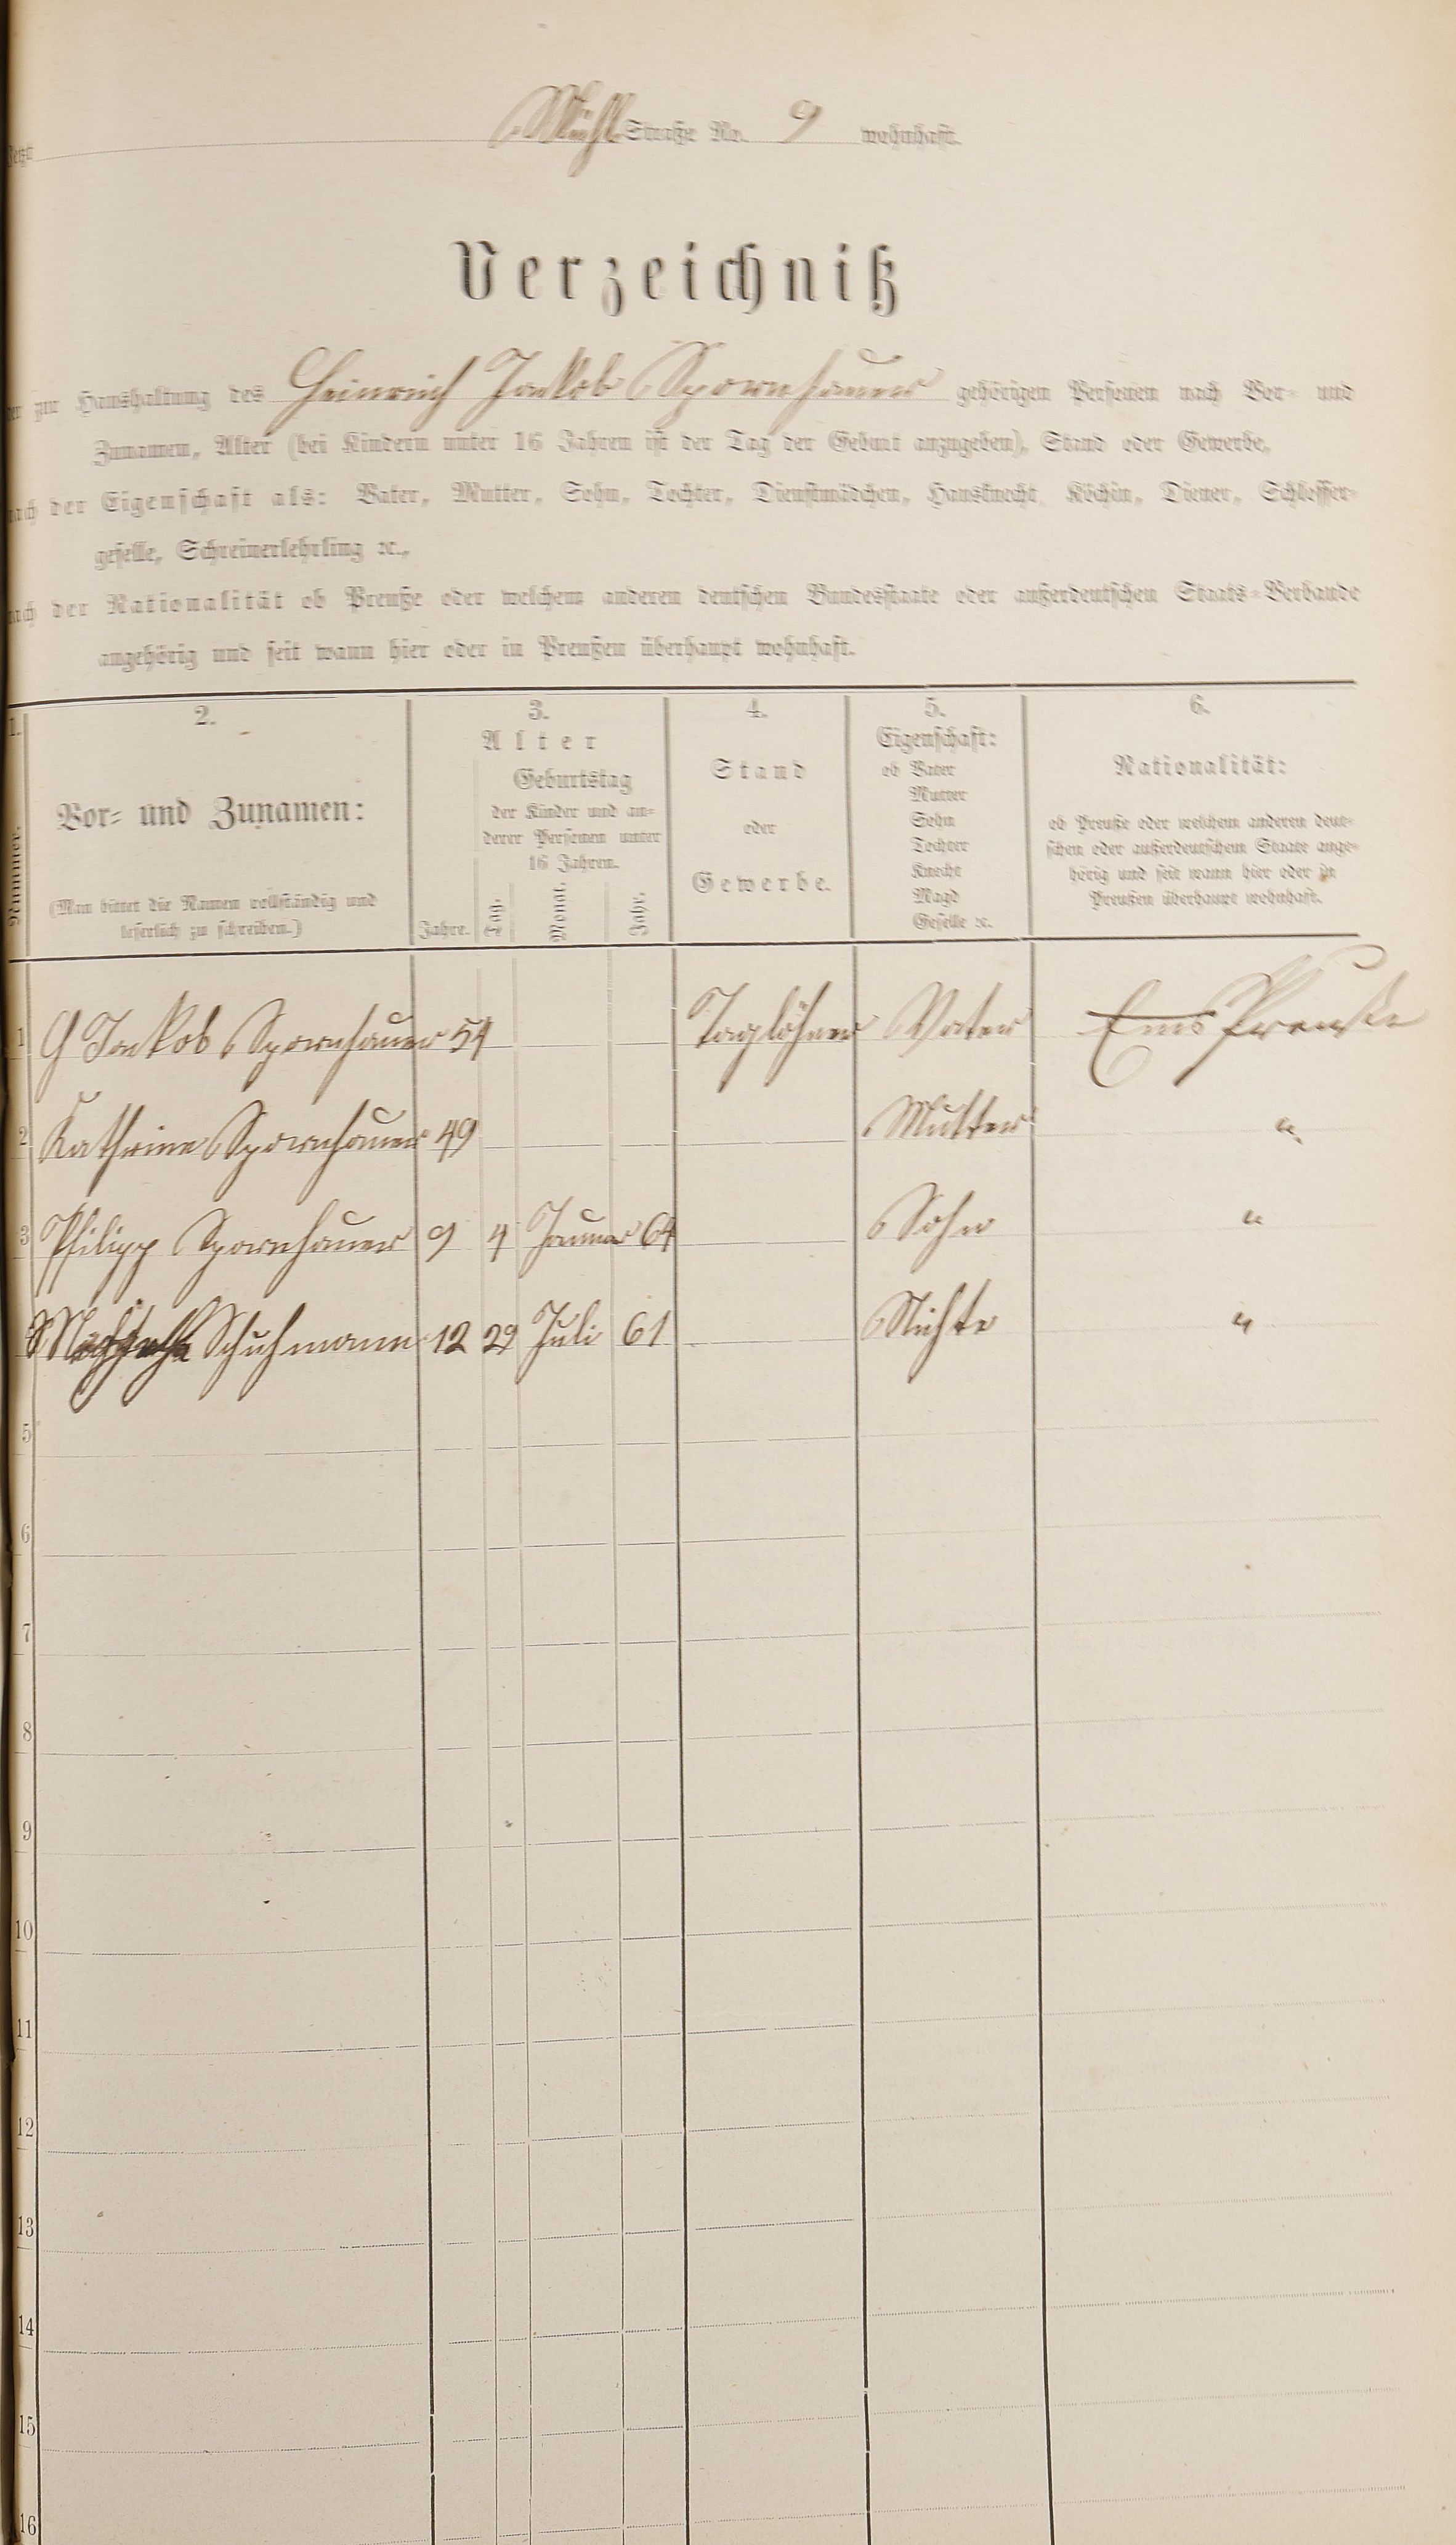 Jetzt Mühl Straße No. 9 wohnhaft.
Verzeichniß
der zur Haushaltung des Heinrich Jackob Spornhauer gehörigen Personen nach Vor- und
Zunamen, Alter (bei Kindern unter 16 Jahren ist der Tag der Geburt anzugeben), Stand oder Gewerbe,
nach der Eigenschaft als: Vater, Mutter, Sohn, Tochter, Dienstmädchen, Hausknecht, Köchin, Diener, Schlosser-
geselle, Schreinerlehrling ꝛc.,
nach der Nationalität ob Preuße oder welchem anderen deutschen Bundesstaate oder außerdeutschen Staats-Verbande
angehörig und seit wann hier oder in Preußen überhaupt wohnhaft.
1.
Nummer.
2.
Vor- und Zunamen:
(Man bittet die Namen vollständig und
leserlich zu schreiben.)
3.
Alter
Geburtstag
der Kinder und an-
derer Personen unter
16 Jahren.
Jahre. Tag. Monat. Jahr.
4.
Stand
oder
Gewerbe.
5.
Eigenschaft:
ob Vater
Mutter
Sohn
Tochter
Knecht
Magd
Geselle ꝛc.
6.
Nationalität:
ob Preuße oder welchem anderen deut-
schen oder außerdeutschem Staate ange-
hörig und seit wann hier oder in
Preußen überhaupt wohnhaft.
1 H Jackob Spornhauer 54 Taglöhner Vater Ems Preuße
2 Kathrine Spornhauer 49 Mutter "
3 Philipp Spornhauer 9 4 Januar 64 Sohn "
Schuhmann 12 29 Juli 61 Nichte "
5
6
7
8
9
10
11
12
13
14
15
16